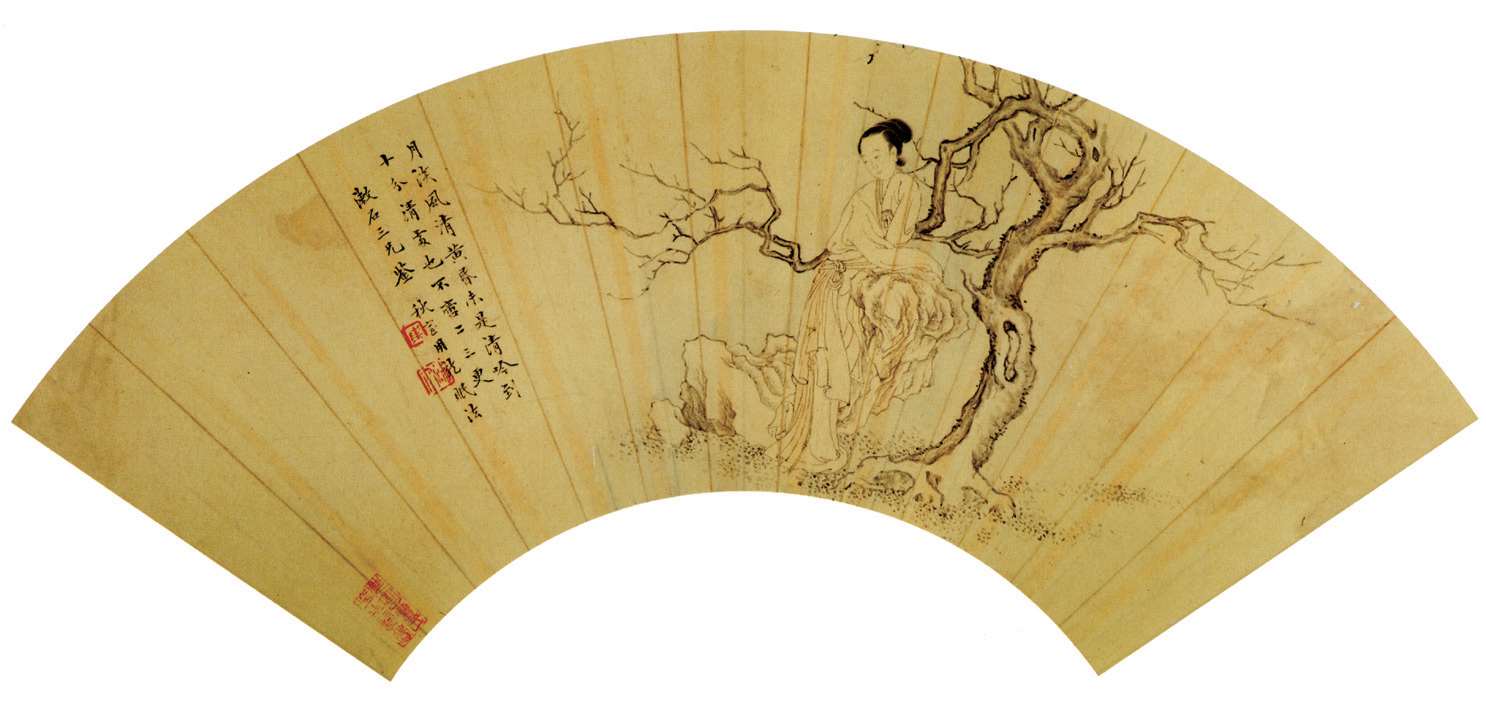 月風清黄昏未是清吟到
十分清貴也不啻二三更
漱石三兄鑒 秋室用龍眠法